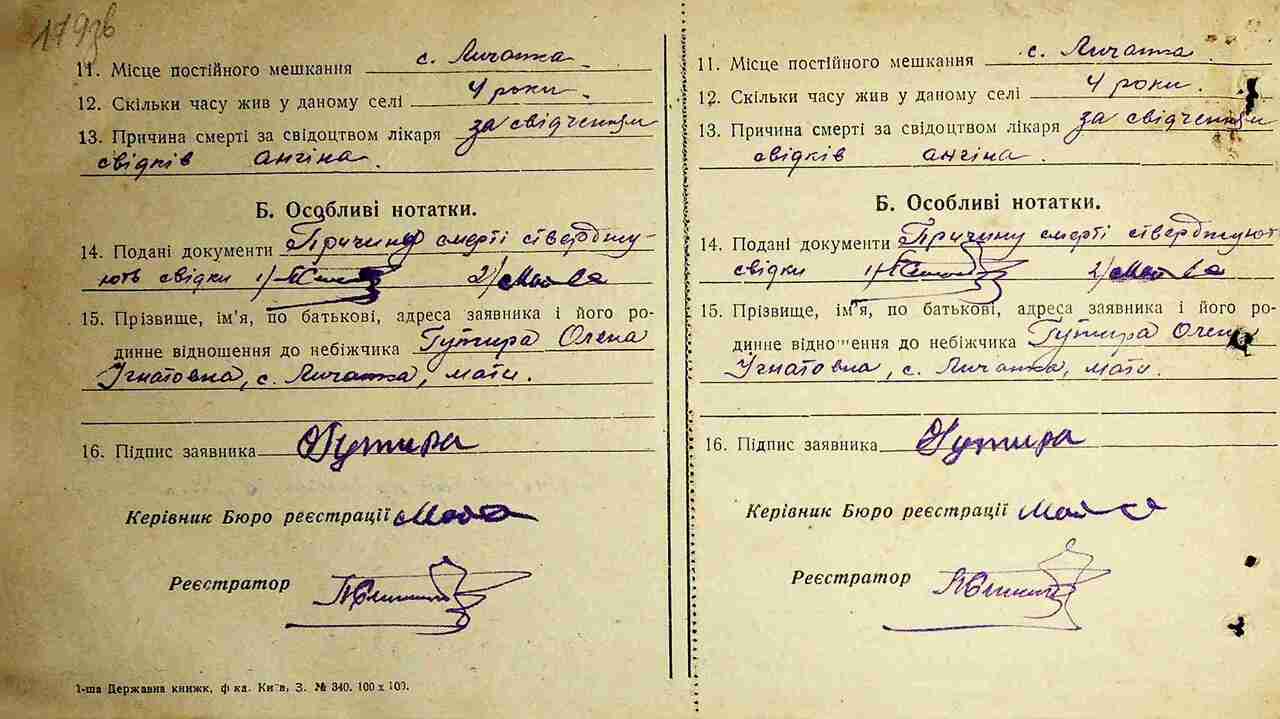 179зв
11. Місце постійного мешкання с. Личанка
12. Скільки часу жив у даному селі 4 роки.
13. Причина смерті за свідоцтвом лікаря за свідченням
свідків ангіна.
Б. Особливі нотатки.
14. Подані документи Причину смерті стверджу-
ють свідки 1/ 2/
15. Прізвище, ім'я, по батькові, адреса заявника і його ро-
динне відношення до небіжчика Гутира Олена
Ігнатовна, с. Личанка, мати.
16. Підпис заявника Гутира
Керівник Бюро реєстрації
Реєстратор
1-ша Державна книжк. ф-ка. Київ, З. № 340. 100 x 100.
11. Місце постійного мешкання с. Личанка
12. Скільки часу жив у даному селі 4 роки.
13. Причина смерті за свідоцтвом лікаря за свідченням
свідків ангіна.
Б. Особливі нотатки.
14. Подані документи Причину смерті стверджують
свідки 1/ 2/
15. Прізвище, ім'я, по батькові, адреса заявника і його ро-
динне відношення до небіжчика Гутира Олена
Ігнатовна, с. Личанка, мати.
16. Підпис заявника Гутира
Керівник Бюро реєстрації
Реєстратор